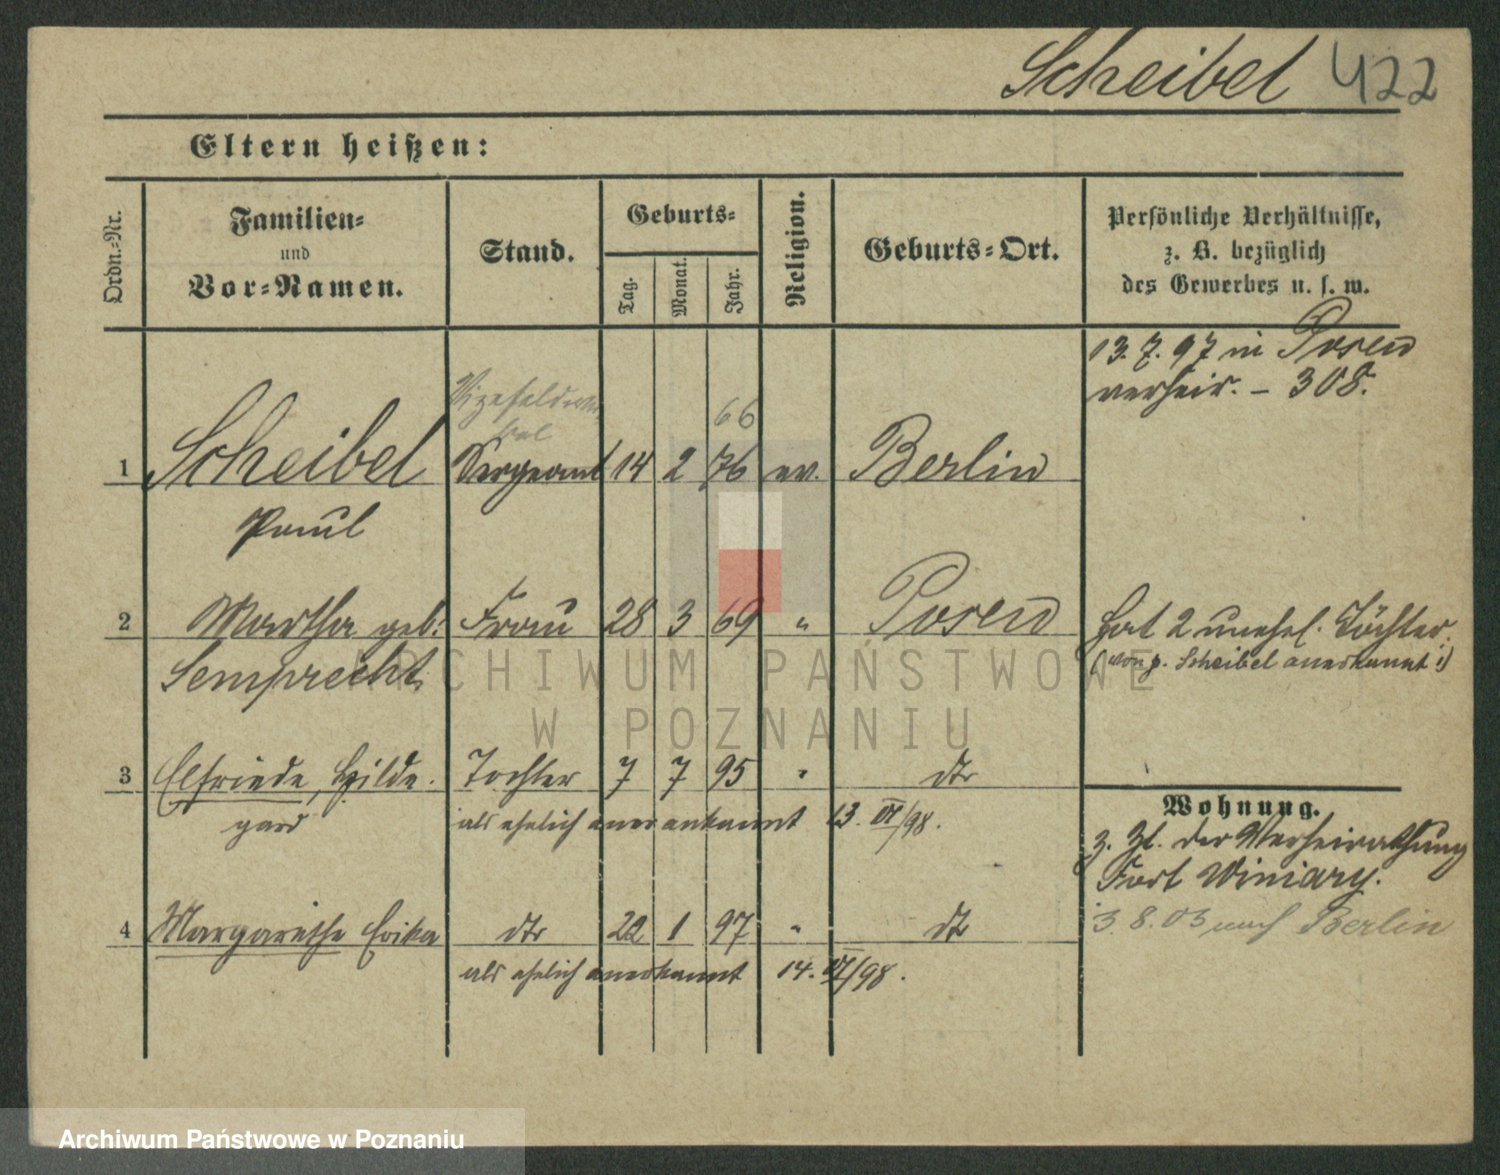 Scheibel 422
Eltern heißen:
Ordn.-Nr.
Familien-
und
Vor-Namen.
Stand.
Geburts-
Tag.
Monat.
Jahr.
Religion.
Geburts-Ort.
Persönliche Verhältnisse,
z. B. bezüglich
des Gewerbes u. s. w.
13. 7. 97 in Posen
verheir. – 308.
Vizefeldwe
bel
66
1 Scheibel Sergeant 14 2 76 ev. Berlin
Paul
2 Martha geb. Frau 28 3 69 " Posen hat 2 unehel. Töchter
Semprecht (von p. Scheibel anerkannt!)
3 Elfriede, Hilde- Tochter 7 7 95 " dto
gard als ehelich anerkannt 13. VI/98.
Wohnung.
z. Zt. der Verheirathung
Fort Winiary.
4 Margarethe Erika dto 22 1 97 " dto
3.8.03 nach Berlin
als ehelich anerkannt 14. VI/98.
ARCHIWUM PAŃSTWOWE
W POZNANIU
Archiwum Państwowe w Poznaniu